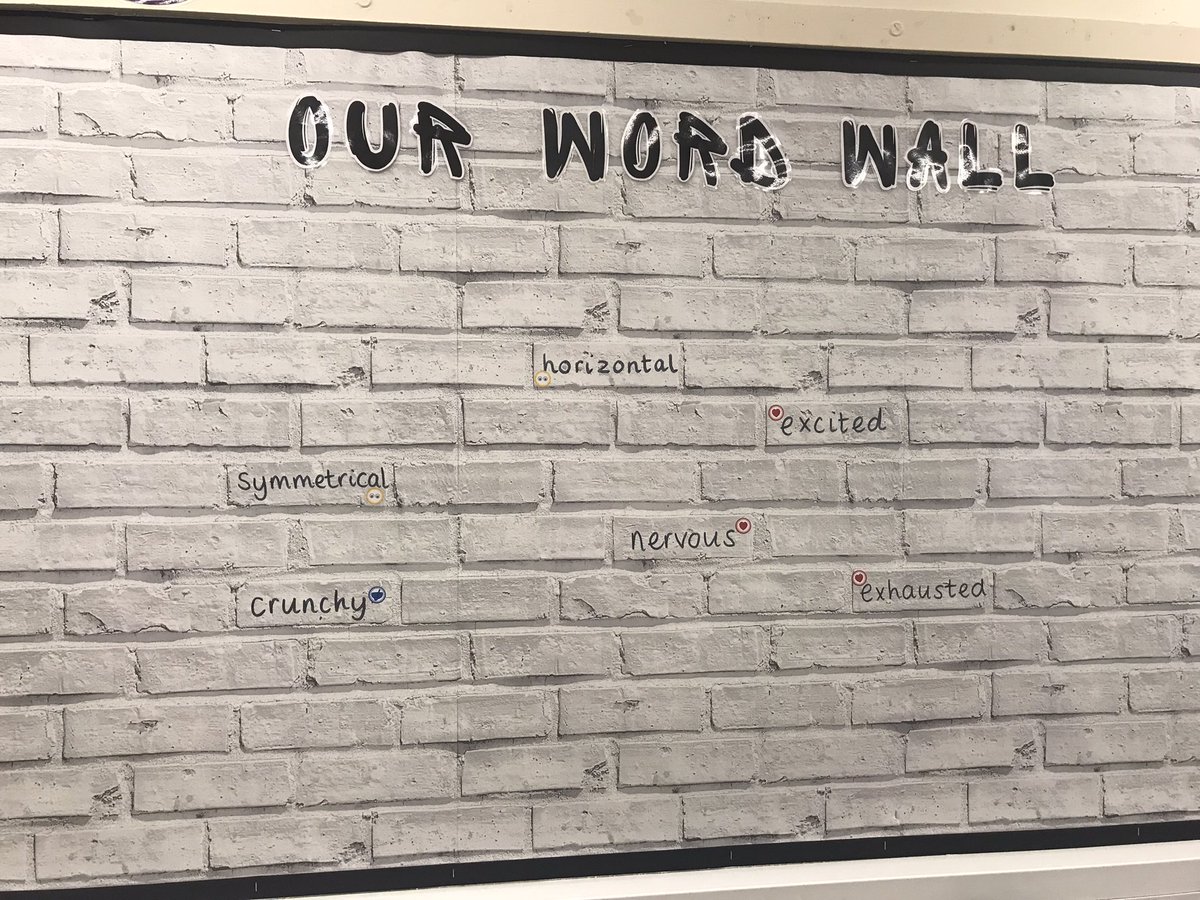 OUR WORD WALL
horizontal
excited
symmetrical
nervous
crunchy
exhausted